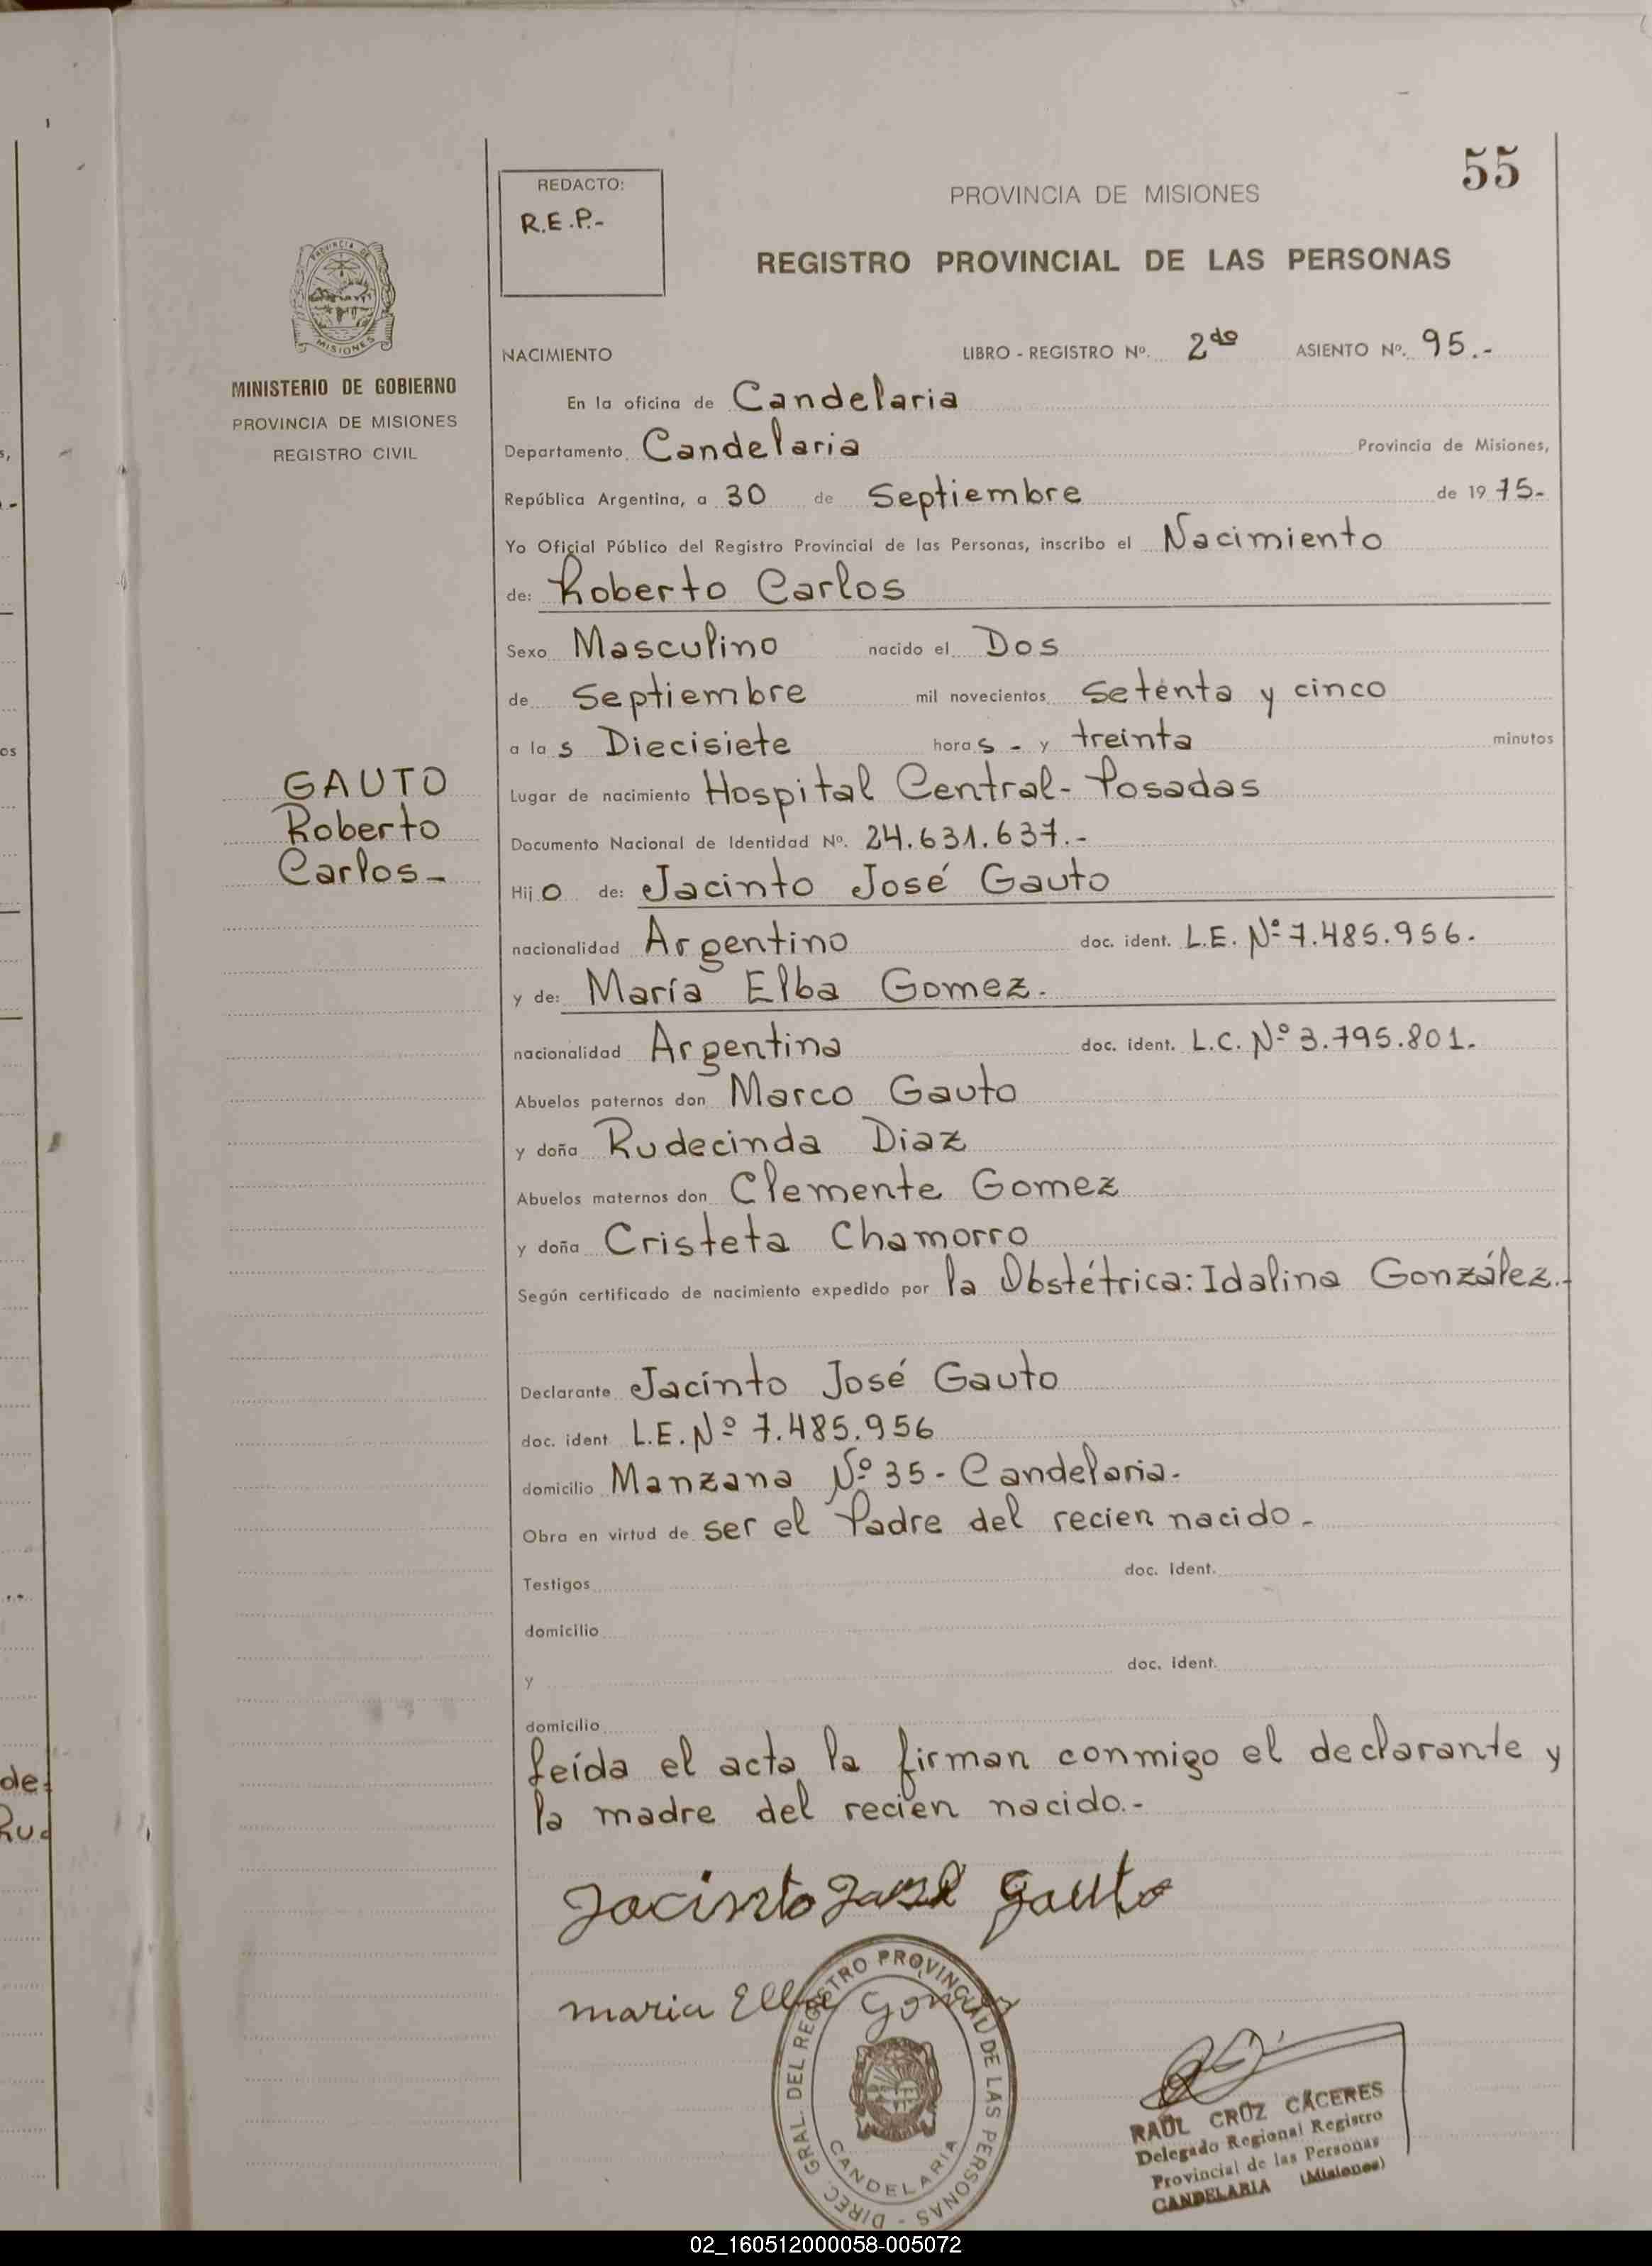 55
REDACTO:
R.E.P.-
PROVINCIA DE MISIONES
REGISTRO PROVINCIAL DE LAS PERSONAS
PROVINCIA DE
MISIONES
MINISTERIO DE GOBIERNO
PROVINCIA DE MISIONES
REGISTRO CIVIL
NACIMIENTO LIBRO - REGISTRO Nº. 2do ASIENTO Nº. 95.-
En la oficina de Candelaria
Departamento Candelaria Provincia de Misiones,
República Argentina, a 30 de Septiembre de 19 75-
Yo Oficial Público del Registro Provincial de las Personas, inscribo el Nacimiento
de: Roberto Carlos
Sexo Masculino nacido el Dos
de Septiembre mil novecientos setenta y cinco
a las Diecisiete horas - y treinta minutos
GAUTO
Roberto
Carlos-
Lugar de nacimiento Hospital Central - Posadas
Documento Nacional de Identidad Nº. 24.631.637.-
Hijo de: Jacinto José Gauto
nacionalidad Argentino doc. ident. L.E. Nº 7.485.956.
y de: María Elba Gomez.
nacionalidad Argentina doc. ident. L.C. Nº 3.795.801.
Abuelos paternos don Marco Gauto
y doña Rudecinda Diaz
Abuelos maternos don Clemente Gomez
y doña Cristeta Chamorro
Según certificado de nacimiento expedido por la Obstétrica: Idalina González.-
Declarante Jacinto José Gauto
doc. ident L.E. Nº 7.485.956
domicilio Manzana Nº 35 - Candelaria.
Obra en virtud de ser el Padre del recien nacido -
Testigos doc. ident.
domicilio
y doc. ident.
domicilio
leída el acta la firman conmigo el declarante y
la madre del recien nacido.-
Jacinto José Gauto
maria Elba Gomez
DIREC. GRAL. DEL REGISTRO PROVINCIAL DE LAS PERSONAS -
CANDELARIA
RAUL CRUZ CÁCERES
Delegado Regional Registro
Provincial de las Personas
CANDELARIA (Misiones)
02_160512000058-005072